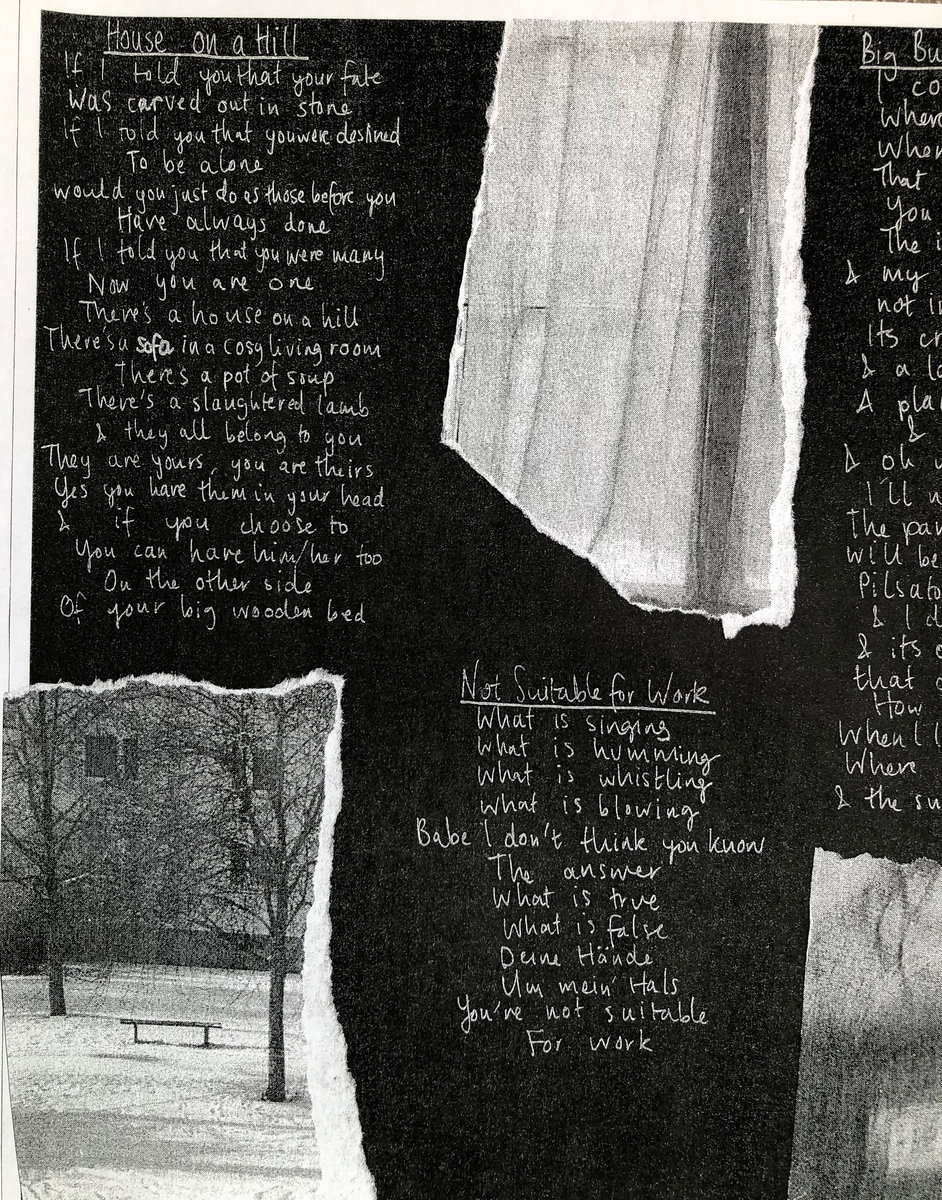 House on a Hill
If I told you that your fate
Was carved out in stone
If I told you that you were destined
To be alone
Would you just do as those before you
Have always done
If I told you that you were many
Now you are one
There's a house on a hill
There's a sofa in a cosy living room
There's a pot of soup
There's a slaughtered lamb
& they all belong to you
They are yours, you are theirs
Yes you have them in your head
& if you choose to
You can have him/her too
On the other side
Of your big wooden bed
Not Suitable for Work
What is singing
What is humming
What is whistling
What is blowing
Babe I don't think you know
The answer
What is true
What is false
Deine Hände
Um mein' Hals
You're not suitable
For work
Big
I
When
That
You
The
& my
not
Its
& a
A
&
& oh
I'll
The
Will be
& I
& its
that
How
When I
Where
& the